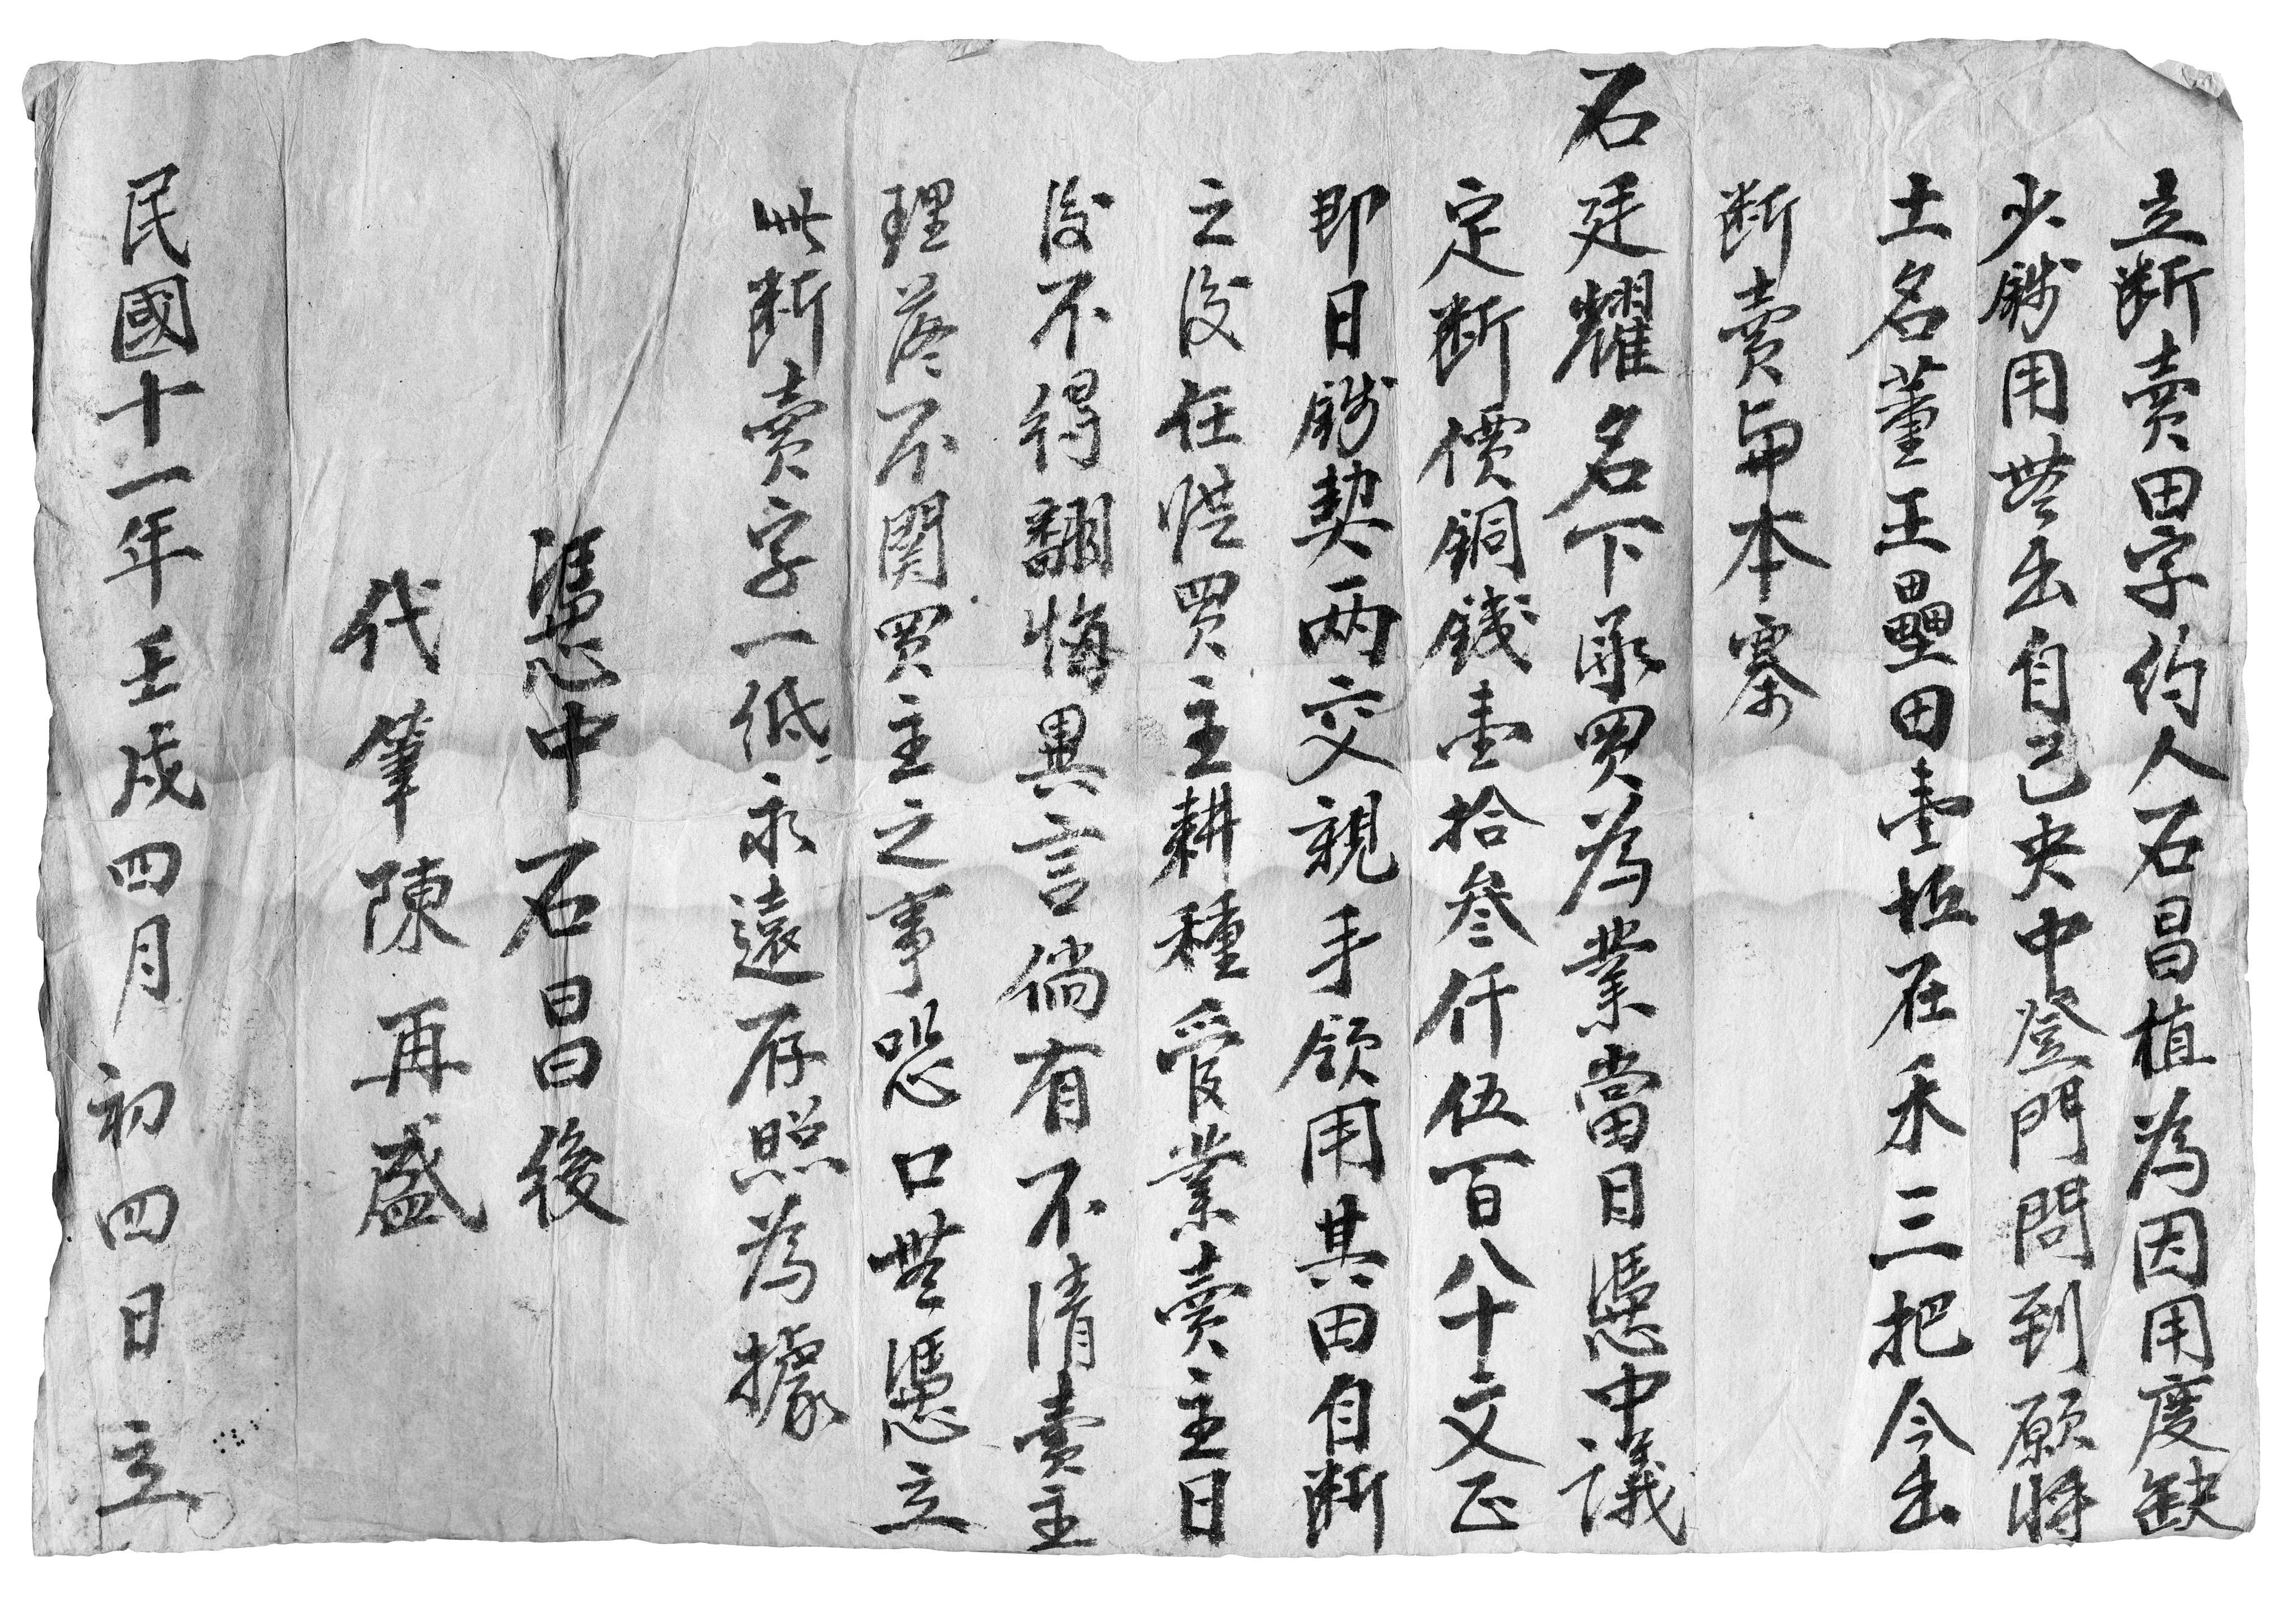 立断賣田字約人石昌植為因用度缺
少錢用無出自己央中登門問到願將
土名董王壘田壹坵在禾三把今出
断賣與本寨
石廷耀名下承買為業當日憑中議
定断價銅錢壹拾叁仟伍百八十文正
即日錢契两交親手領用其田自断
之後任憑買主耕種管業賣主日
後不得翻悔異言倘有不清賣主
理落不関買主之事恐口無憑立
此断賣字一纸永遠存照為據
憑中石昌後
代筆陳再盛
民國十一年壬戌四月初四日立